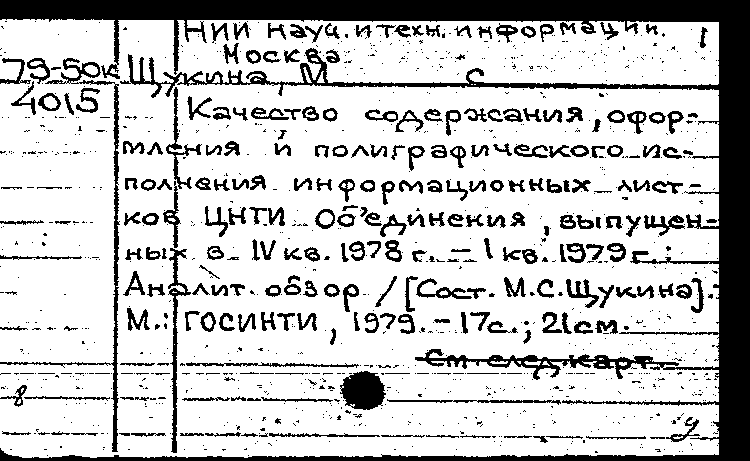 НИИ науч. и техн. информации. 1
Москва.
79-50к Щукина, М С
4015 Качество содержания, офор-
мления и полиграфического ис-
полнения информационных лист-
ков ЦНТИ Об'единения, выпущен-
ных в IV кв. 1978 г. – I кв. 1979 г.:
Аналит. обзор / [Сост. М.С.Щукина].-
М.: ГОСИНТИ, 1979. – 17с.; 21см.
См след.карт.
8
у